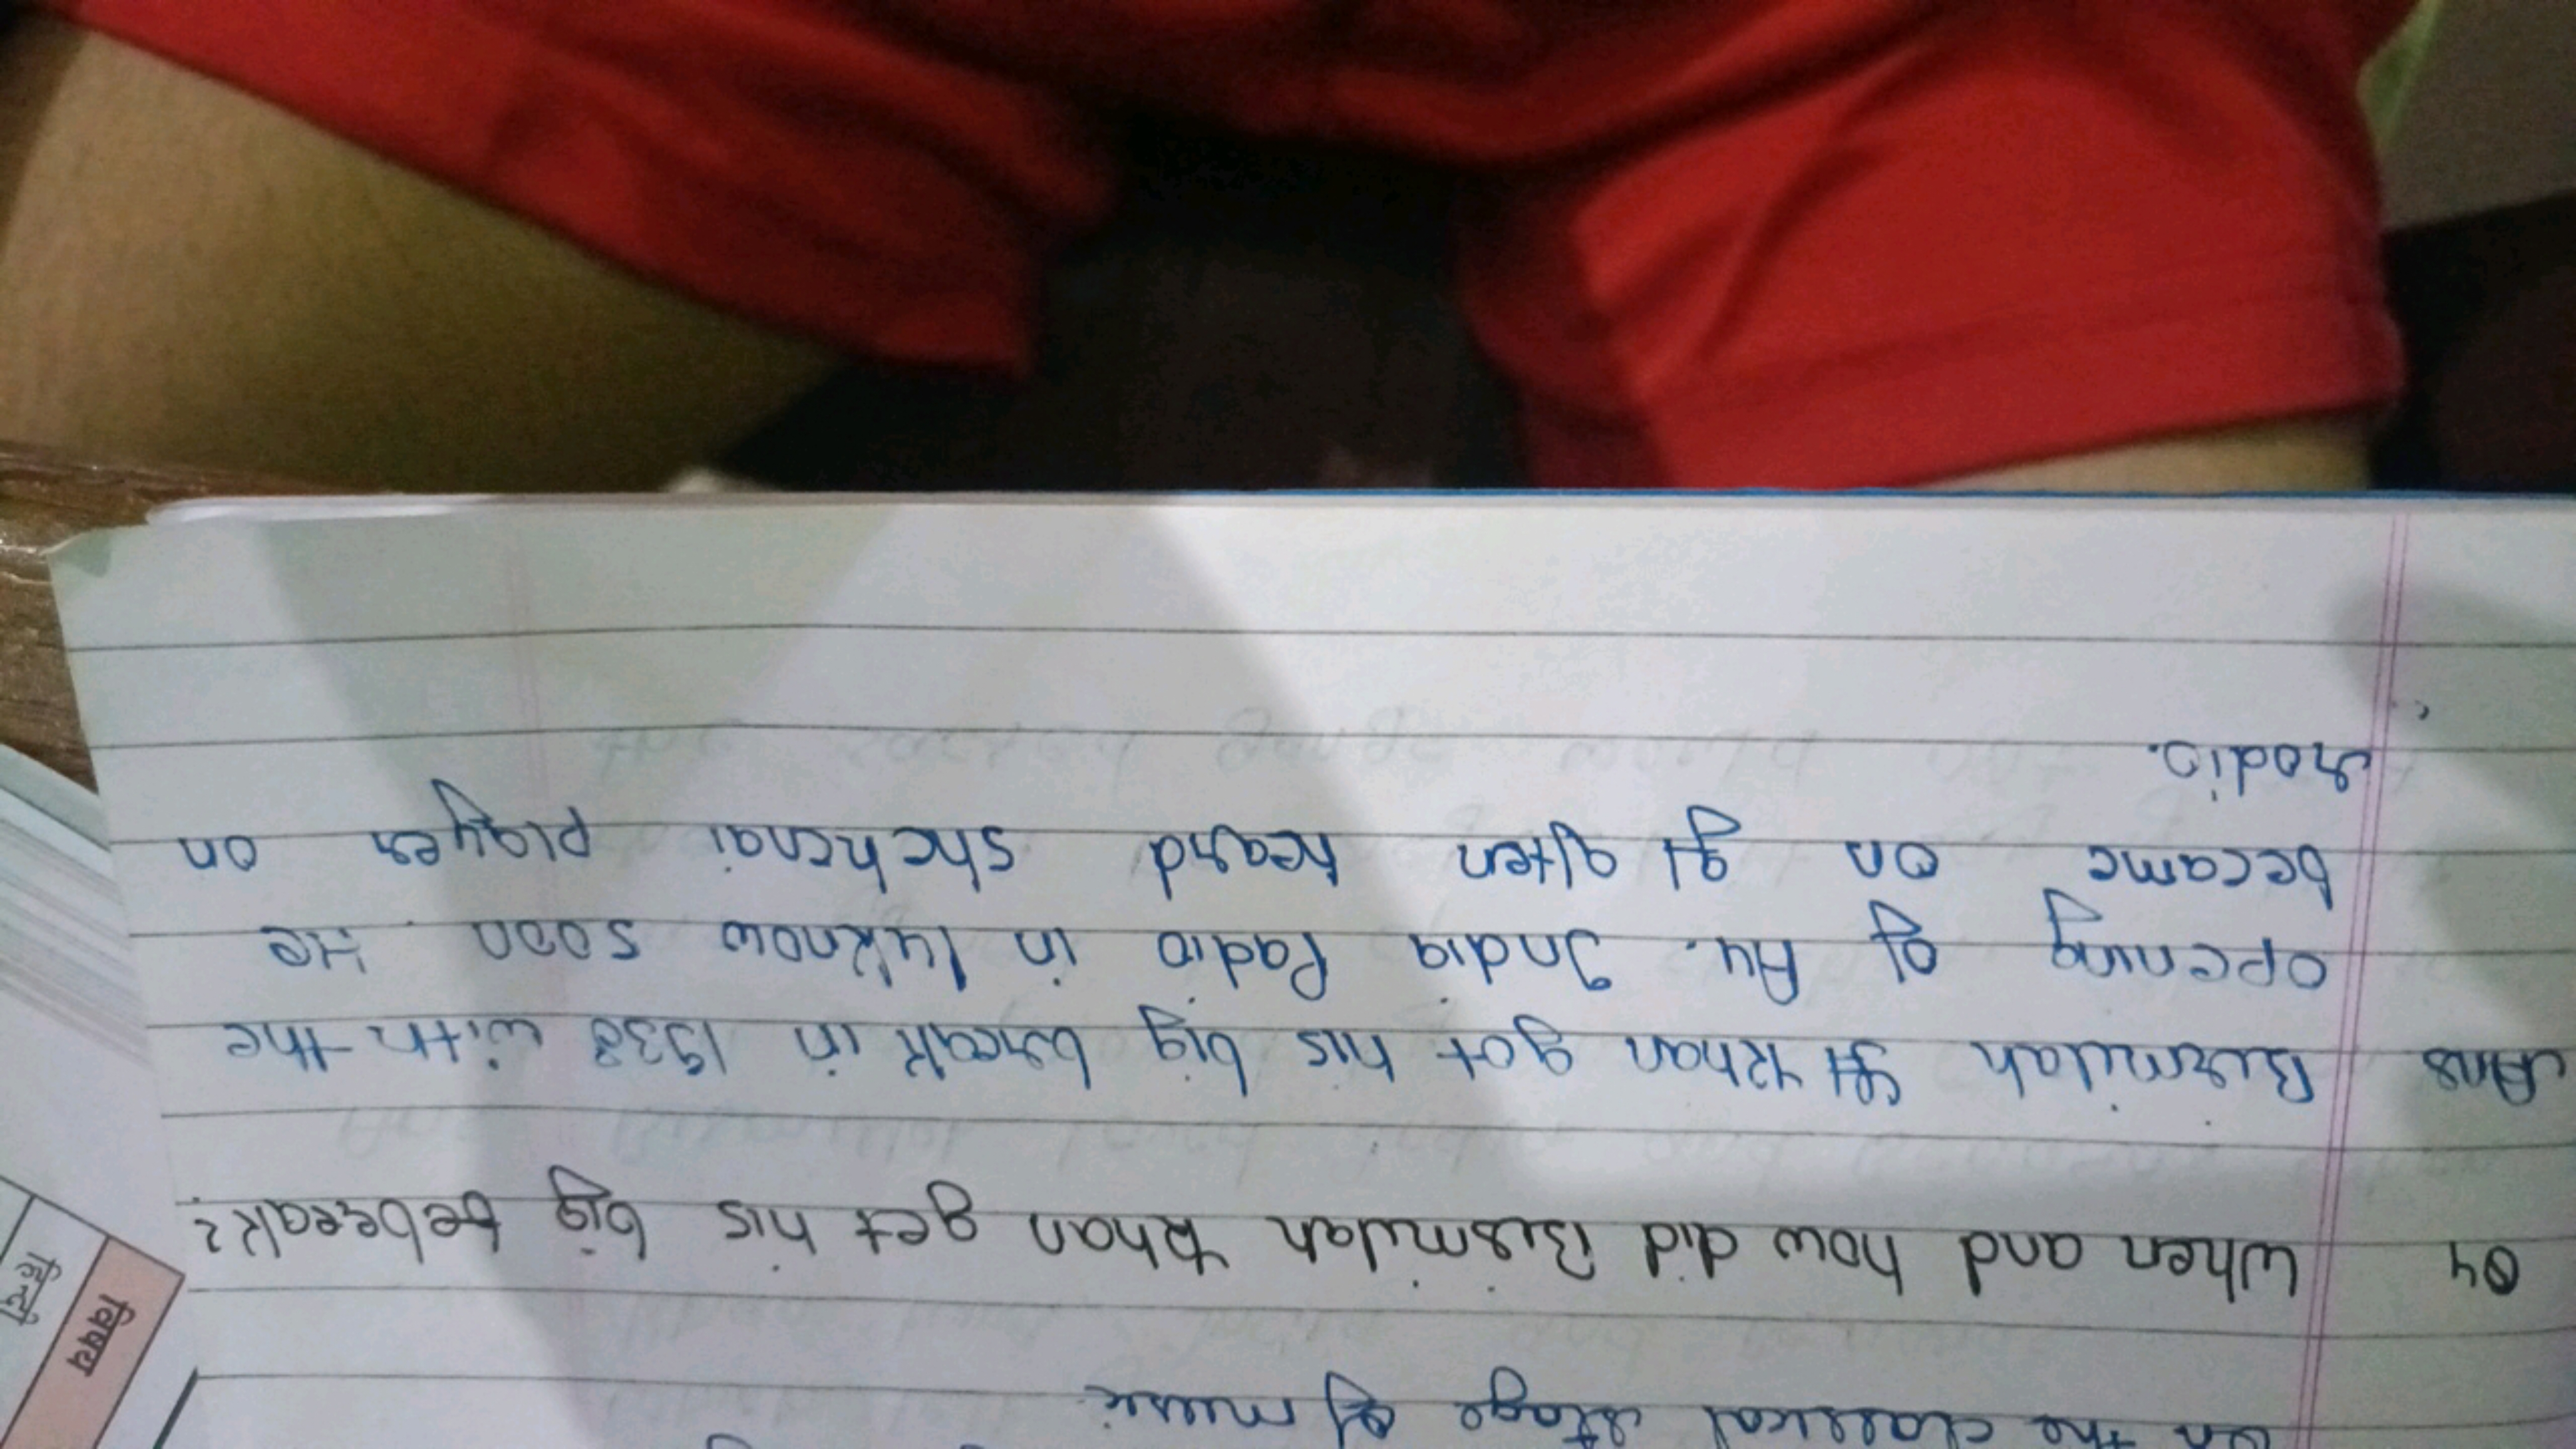 on the classical stage of music.
Q4 When and how did Bismilah Khan get his big bebreak?
Ans Bismilah Khan got his big break in 1938 with the
opening of All. India Radio in luknow soon He
became on often heard shehenai player on
radio.
विषय
हिन्दी